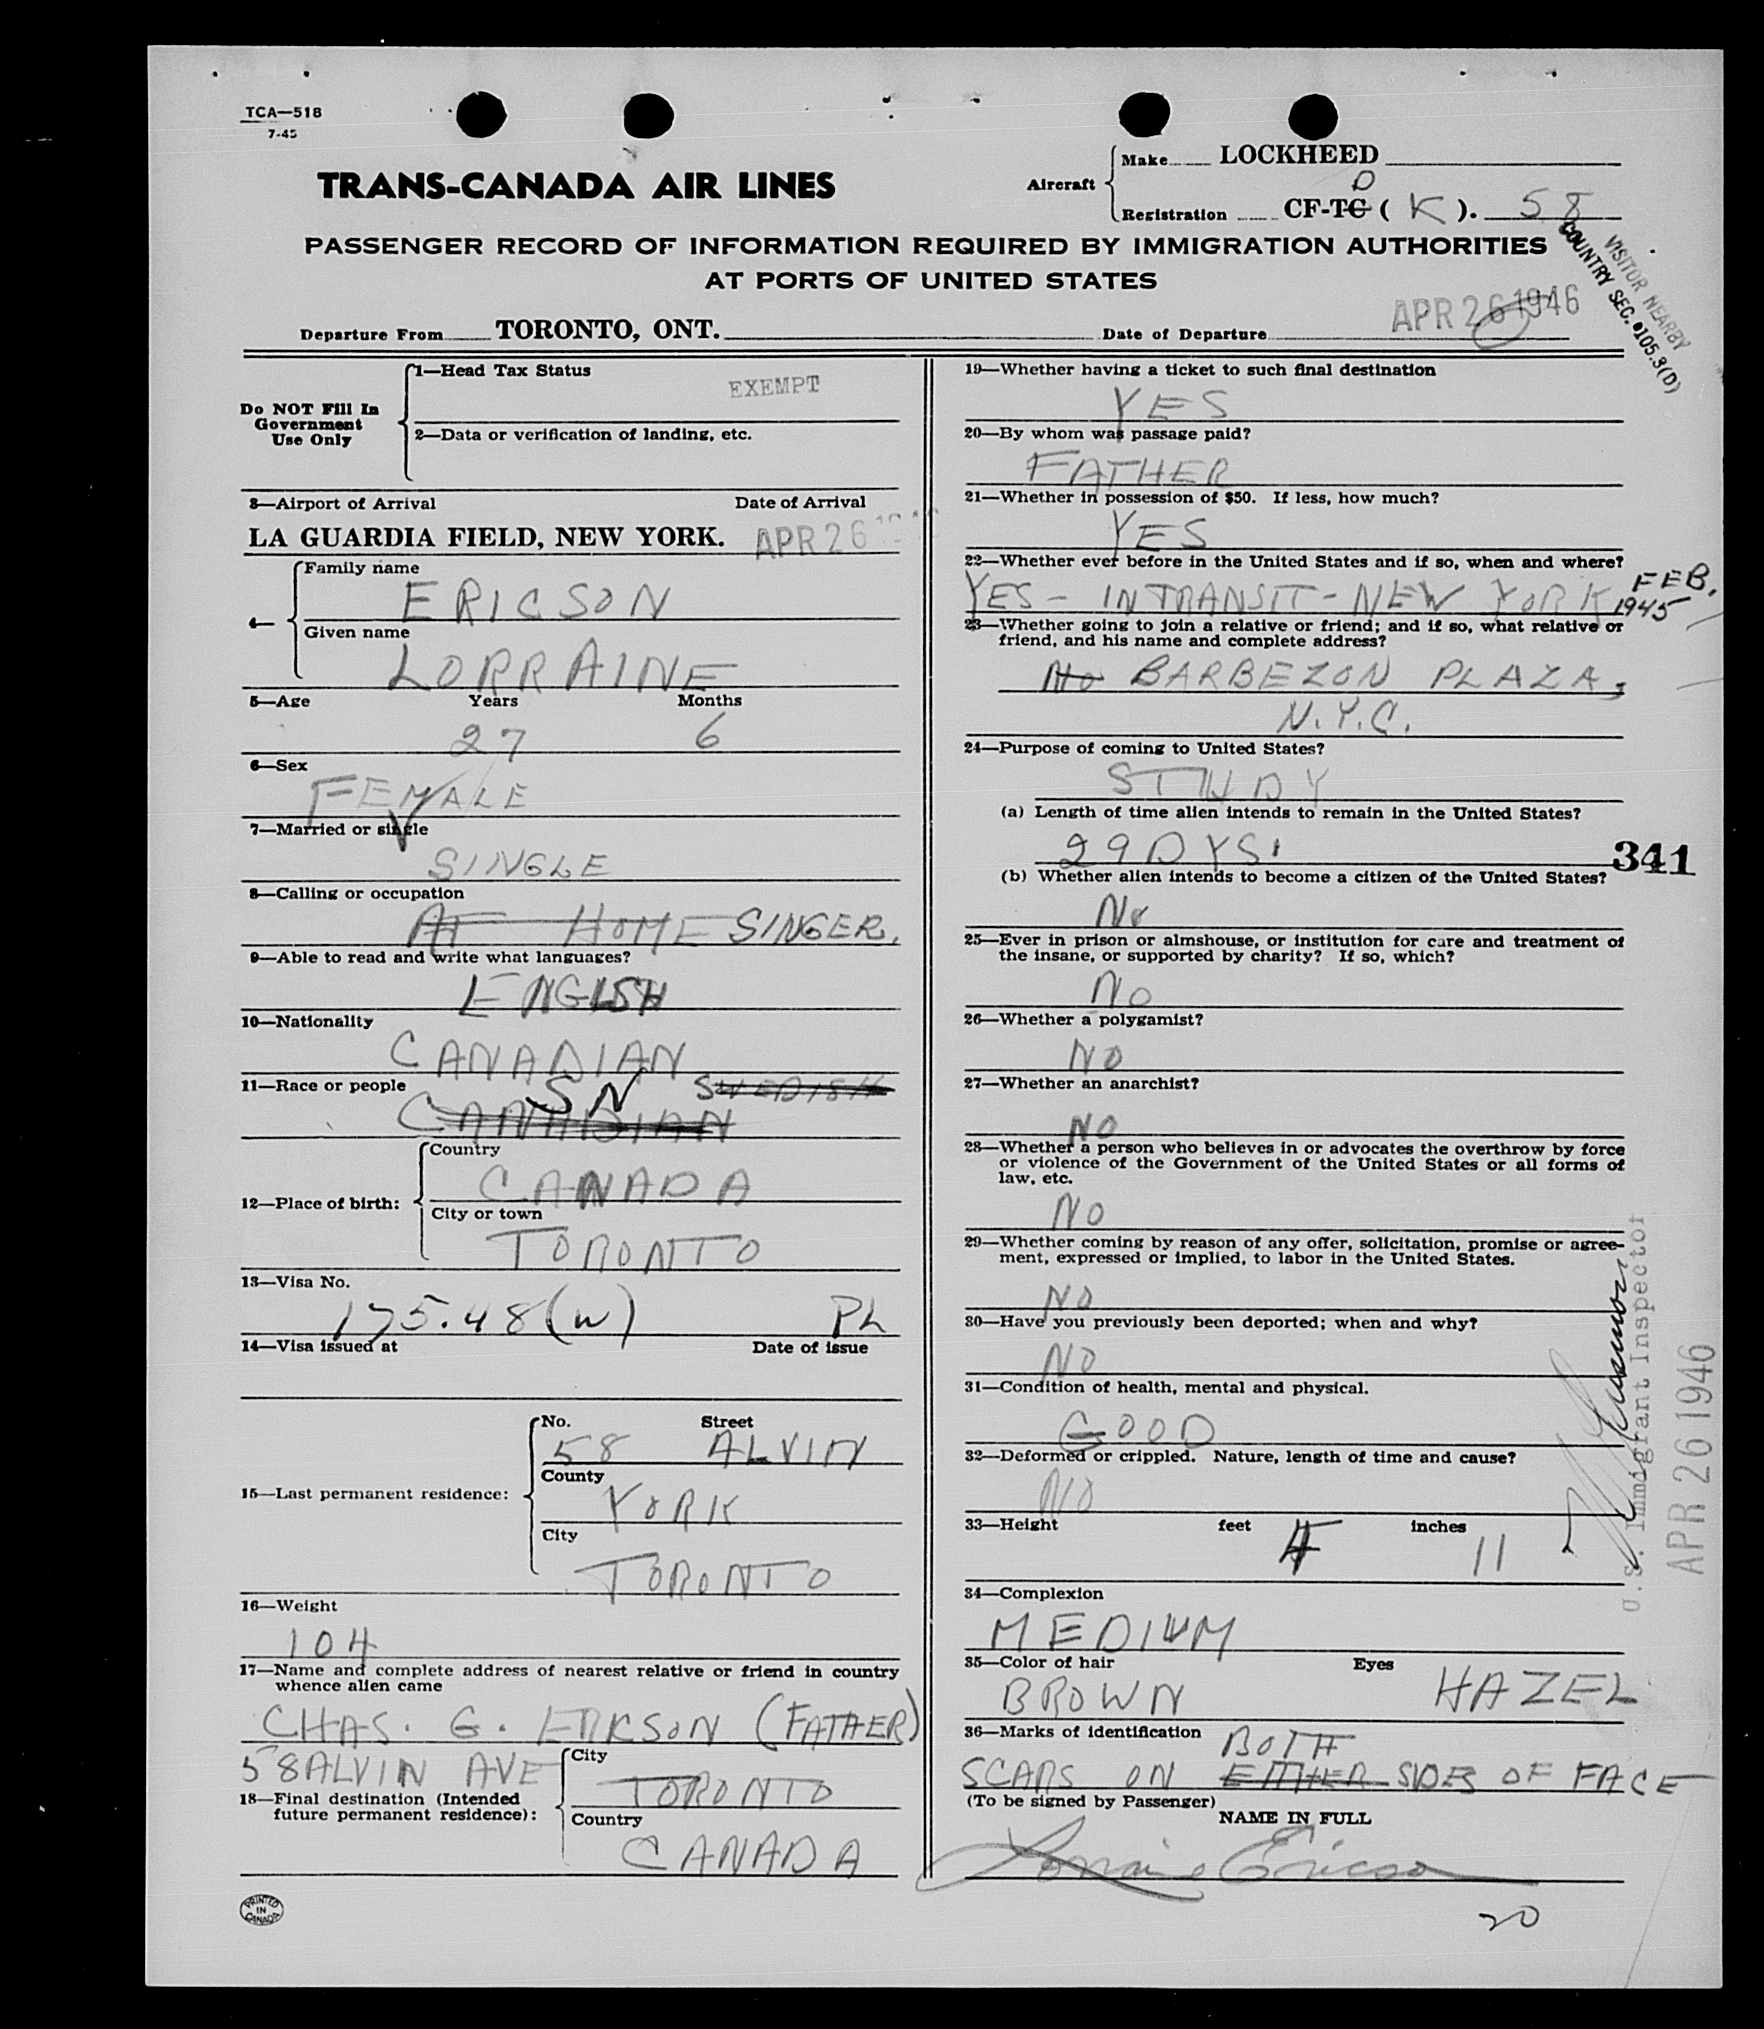 TCA—518
7-45
TRANS-CANADA AIR LINES
Aircraft
Make LOCKHEED
D
Registration CF-TC ( K ). 58
PASSENGER RECORD OF INFORMATION REQUIRED BY IMMIGRATION AUTHORITIES
AT PORTS OF UNITED STATES
VISITOR NEARBY
COUNTRY SEC. 105.3(D)
Departure From TORONTO, ONT. Date of Departure APR 26 1946
Do NOT Fill In
Government
Use Only
1—Head Tax Status
EXEMPT
2—Data or verification of landing, etc.
3—Airport of Arrival Date of Arrival
LA GUARDIA FIELD, NEW YORK. APR 26
4—
Family name
ERICSON
Given name
LORRAINE
5—Age Years Months
27 6
6—Sex
FEMALE
7—Married or single
SINGLE
8—Calling or occupation
AT HOME SINGER.
9—Able to read and write what languages?
ENGLSH
10—Nationality
CANADIAN
11—Race or people SWEDISH
SN
CANADIAN
12—Place of birth:
Country
CANADA
City or town
TORONTO
13—Visa No.
175.48(W) PL
14—Visa issued at Date of issue
15—Last permanent residence:
No. Street
58 ALVIN
County
YORK
City
TORONTO
16—Weight
104
17—Name and complete address of nearest relative or friend in country
whence alien came
CHAS. G. ERICSON (FATHER)
58 ALVIN AVE
18—Final destination (Intended
future permanent residence):
City
TORONTO
Country
CANADA
PRINTED
IN
CANADA
19—Whether having a ticket to such final destination
YES
20—By whom was passage paid?
FATHER
21—Whether in possession of $50. If less, how much?
YES
22—Whether ever before in the United States and if so, when and where?
YES - IN TRANSIT - NEW YORK FEB.
1945
23—Whether going to join a relative or friend; and if so, what relative or
friend, and his name and complete address?
No BARBEZON PLAZA,
N.Y.C.
24—Purpose of coming to United States?
STUDY
(a) Length of time alien intends to remain in the United States?
29 DYS.
341
(b) Whether alien intends to become a citizen of the United States?
No
25—Ever in prison or almshouse, or institution for care and treatment of
the insane, or supported by charity? If so, which?
NO
26—Whether a polygamist?
NO
27—Whether an anarchist?
NO
28—Whether a person who believes in or advocates the overthrow by force
or violence of the Government of the United States or all forms of
law, etc.
NO
29—Whether coming by reason of any offer, solicitation, promise or agree-
ment, expressed or implied, to labor in the United States.
NO
30—Have you previously been deported; when and why?
NO
31—Condition of health, mental and physical.
GOOD
32—Deformed or crippled. Nature, length of time and cause?
NO
33—Height feet 4 inches 11
34—Complexion
MEDIUM
35—Color of hair Eyes
BROWN HAZEL
36—Marks of identification BOTH
SCARS ON EITHER SIDES OF FACE
(To be signed by Passenger)
NAME IN FULL
Lorraine Ericson
20
U.S. Immigrant Inspector
APR 26 1946